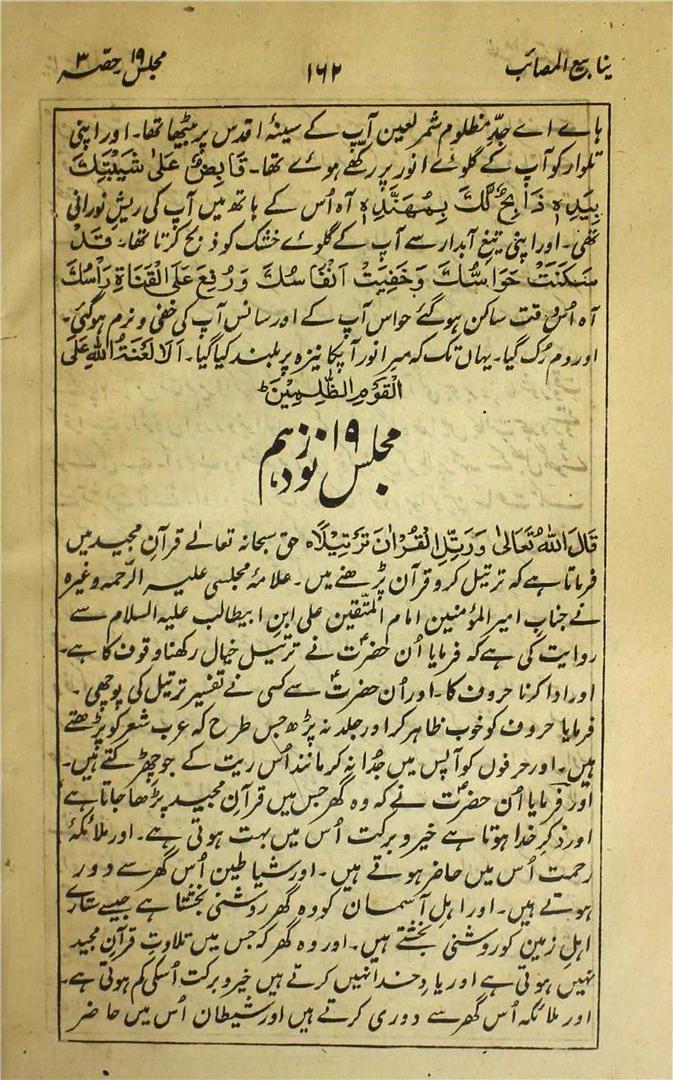 ینابیع المصائب ۱۶۲ مجلس ۱۹ حصّہ ۳
ہاے اے جدِّ مظلوم شمر لعین آپ کے سینۂ اقدس پر بیٹھا تھا۔ اور اپنی
تلوار کو آپ کے گلوے انور پر رکھے ہوئے تھا۔ قَابِضٌ عَلیٰ شَیْبَتِکَ
بِیَدِہٖ ذَابِحٌ لَّکَ بِمُھَنَّدِہٖ آہ اُس کے ہاتھ میں آپ کی ریش نورانی
تھی۔ اور اپنی تیغِ آبدار سے آپ کے گلوے خشک کو ذبح کرتا تھا۔ قَدْ
سَکَنَتْ حَوَاسُّکَ وَخَفِیَتْ اَنْفَاسُکَ وَرُفِعَ عَلَی الْقَنَاۃِ رَاْسُکَ
آہ اُس وقت ساکن ہوگئے حواس آپ کے اور سانس آپ کی خفی و نرم ہوگئی۔
اور دم رُک گیا۔ یہاں تک کہ سر انور آپکا نیزہ پر بلند کیا گیا۔ اَلَا لَعْنَۃُ اللّٰہِ عَلَی
الْقَوْمِ الظّٰلِمِیْنَ ؕ
مجلس ۱۹ نوزدہم
قَالَ اللّٰہُ تَعَالیٰ وَرَتِّلِ الْقُرْاٰنَ تَرْتِیْلًا ہ حق سبحانہ تعالےٰ قرآنِ مجید میں
فرماتا ہے کہ ترتیل کرو قرآن پڑھنے میں۔ علامۂ مجلسی علیہ الرّحمہ وغیرہ
نے جناب امیر المؤمنین امام المتّقین علی ابن ابیطالب علیہ السلام سے
روایت کی ہے کہ فرمایا اُن حضرتؑ نے ترتیل خیال رکھنا وقوف کا ہے۔
اور ادا کرنا حروف کا۔ اور اُن حضرتؑ سے کسی نے تفسیر ترتیل کی پوچھی۔
فرمایا حروف کو خوب ظاہر کر اور جلد نہ پڑھ جس طرح کہ عرب شعر کو پڑھتے
ہیں۔ اور حرفوں کو آپس میں جُدا نہ کر مانند اُس ریت کے جو چھڑکتے ہیں۔
اور فرمایا اُن حضرتؑ نے کہ وہ گھر جس میں قرآنِ مجید پڑھا جاتا ہے
اور ذکرِ خدا ہوتا ہے خیر و برکت اُس میں بہت ہوتی ہے۔ اور ملائکۂ
رحمت اُس میں حاضر ہوتے ہیں۔ اور شیاطین اُس گھر سے دور
ہوتے ہیں۔ اور اہلِ آسمان کو وہ گھر روشنی بخشتا ہے جیسے ستارے
اہلِ زمین کو روشنی بخشتے ہیں۔ اور وہ گھر کہ جس میں تلاوتِ قرآنِ مجید
نہیں ہوتی ہے اور یادِ خدا نہیں کرتے ہیں خیر و برکت اُسکی کم ہوتی ہے۔
اور ملائکہ اُس گھر سے دوری کرتے ہیں اور شیطان اُس میں حاضر